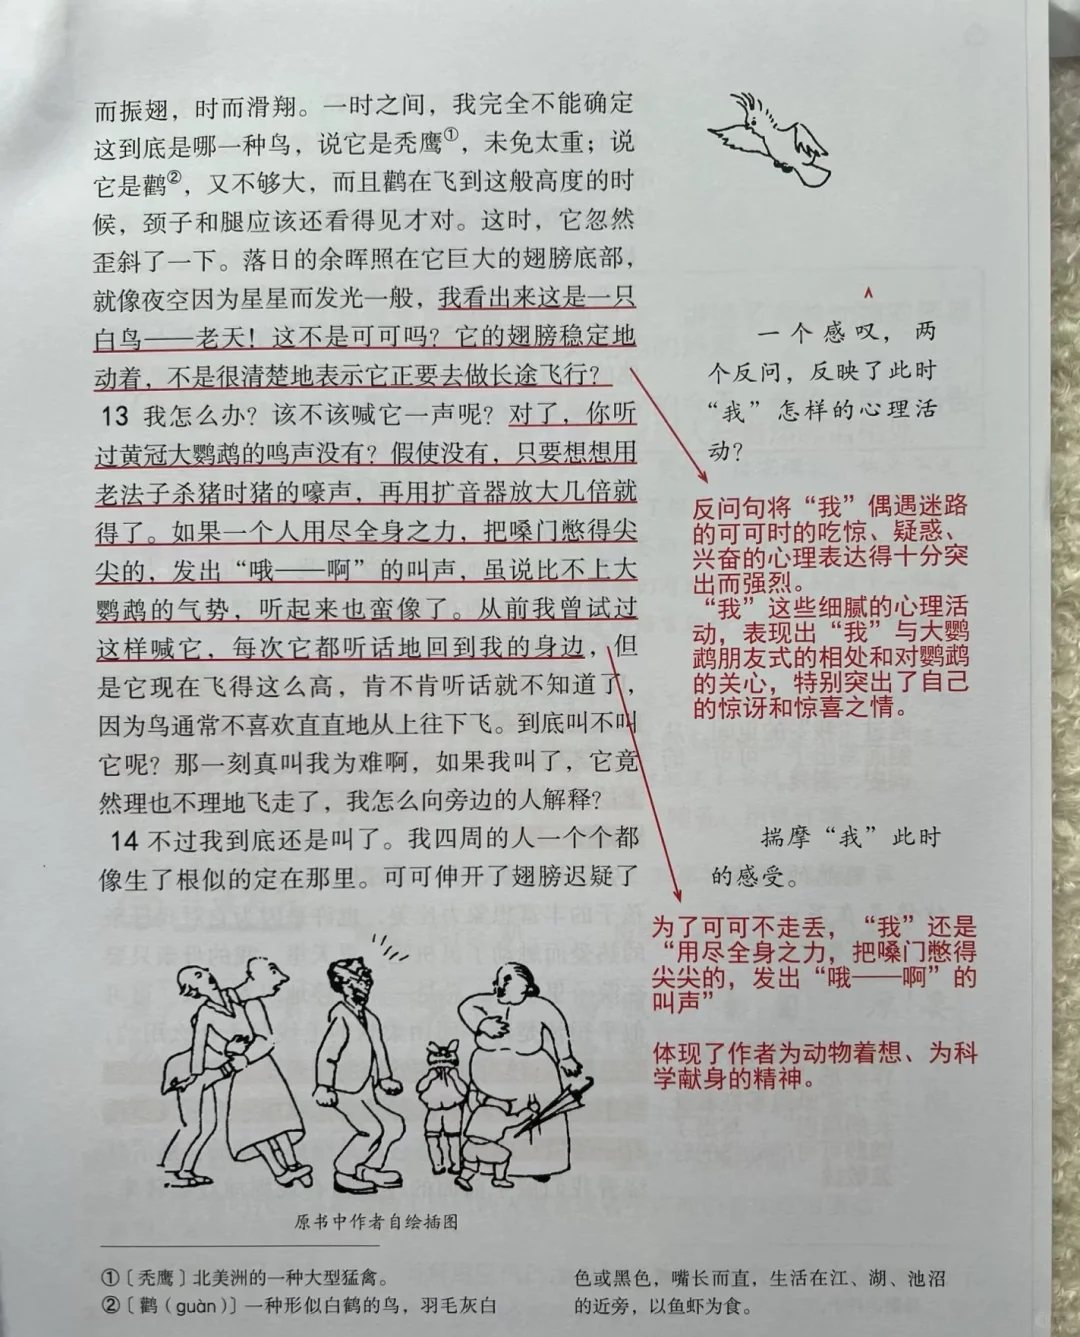 而振翅，时而滑翔。一时之间，我完全不能确定
这到底是哪一种鸟，说它是秃鹰①，未免太重；说
它是鹳②，又不够大，而且鹳在飞到这般高度的时
候，颈子和腿应该还看得见才对。这时，它忽然
歪斜了一下。落日的余晖照在它巨大的翅膀底部，
就像夜空因为星星而发光一般，我看出来这是一只
白鸟——老天！这不是可可吗？它的翅膀稳定地
动着，不是很清楚地表示它正要去做长途飞行？
13 我怎么办？该不该喊它一声呢？对了，你听
过黄冠大鹦鹉的鸣声没有？假使没有，只要想想用
老法子杀猪时猪的嚎声，再用扩音器放大几倍就
得了。如果一个人用尽全身之力，把嗓门憋得尖
尖的，发出“哦——啊”的叫声，虽说比不上大
鹦鹉的气势，听起来也蛮像了。从前我曾试过
这样喊它，每次它都听话地回到我的身边，但
是它现在飞得这么高，肯不肯听话就不知道了，
因为鸟通常不喜欢直直地从上往下飞。到底叫不叫
它呢？那一刻真叫我为难啊，如果我叫了，它竟
然理也不理地飞走了，我怎么向旁边的人解释？
14 不过我到底还是叫了。我四周的人一个个都
像生了根似的定在那里。可可伸开了翅膀迟疑了
一个感叹，两
个反问，反映了此时
“我”怎样的心理活
动？
反问句将“我”偶遇迷路
的可可时的吃惊、疑惑、
兴奋的心理表达得十分突
出而强烈。
“我”这些细腻的心理活
动，表现出“我”与大鹦
鹉朋友式的相处和对鹦鹉
的关心，特别突出了自己
的惊讶和惊喜之情。
揣摩“我”此时
的感受。
为了可可不走丢，“我”还是
“用尽全身之力，把嗓门憋得
尖尖的，发出“哦——啊”的
叫声”
体现了作者为动物着想、为科
学献身的精神。
原书中作者自绘插图
①〔秃鹰〕北美洲的一种大型猛禽。
②〔鹳（guàn）〕一种形似白鹤的鸟，羽毛灰白
色或黑色，嘴长而直，生活在江、湖、池沼
的近旁，以鱼虾为食。